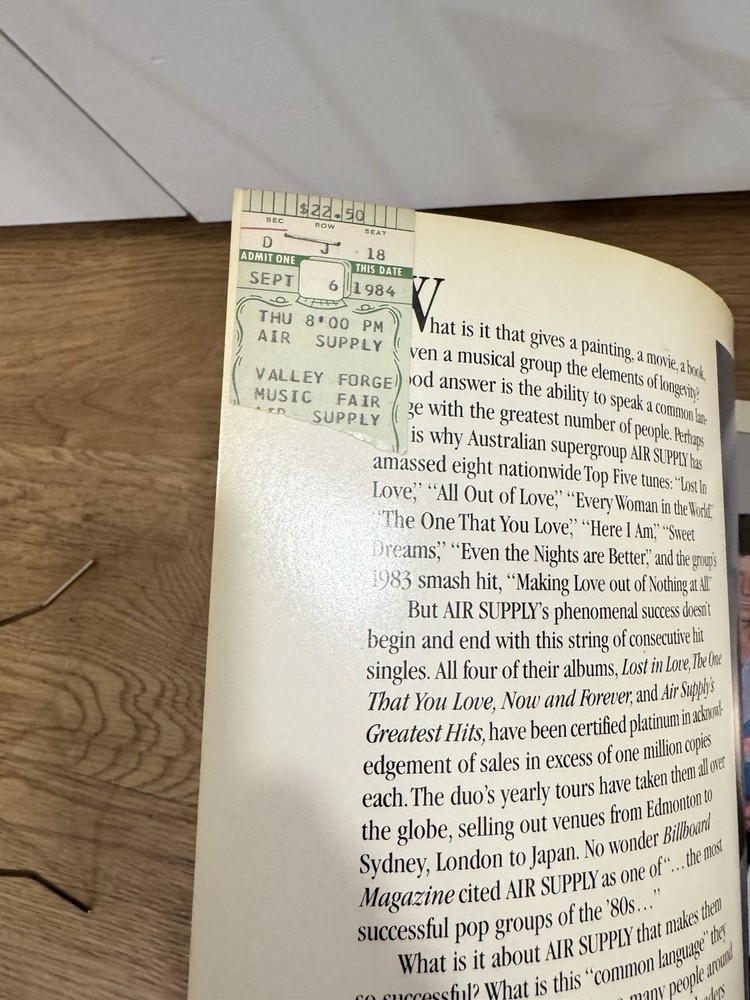 $22.50
SEC ROW SEAT
D J 18
ADMIT ONE THIS DATE
SEPT 6 1984
THU 8:00 PM
AIR SUPPLY
VALLEY FORGE
MUSIC FAIR
AIR SUPPLY
What is it that gives a painting, a movie, a book,
ven a musical group the elements of longevity?
ood answer is the ability to speak a common lan-
ge with the greatest number of people. Perhaps
is why Australian supergroup AIR SUPPLY has
amassed eight nationwide Top Five tunes: "Lost In
Love," "All Out of Love," "Every Woman in the World,"
"The One That You Love," "Here I Am," "Sweet
Dreams," "Even the Nights are Better," and the group's
1983 smash hit, "Making Love out of Nothing at All."
But AIR SUPPLY's phenomenal success doesn't
begin and end with this string of consecutive hit
singles. All four of their albums, Lost in Love, The One
That You Love, Now and Forever, and Air Supply's
Greatest Hits, have been certified platinum in acknowl-
edgement of sales in excess of one million copies
each. The duo's yearly tours have taken them all over
the globe, selling out venues from Edmonton to
Sydney, London to Japan. No wonder Billboard
Magazine cited AIR SUPPLY as one of "...the most
successful pop groups of the '80s..."
What is it about AIR SUPPLY that makes them
so successful? What is this "common language" they
many people around